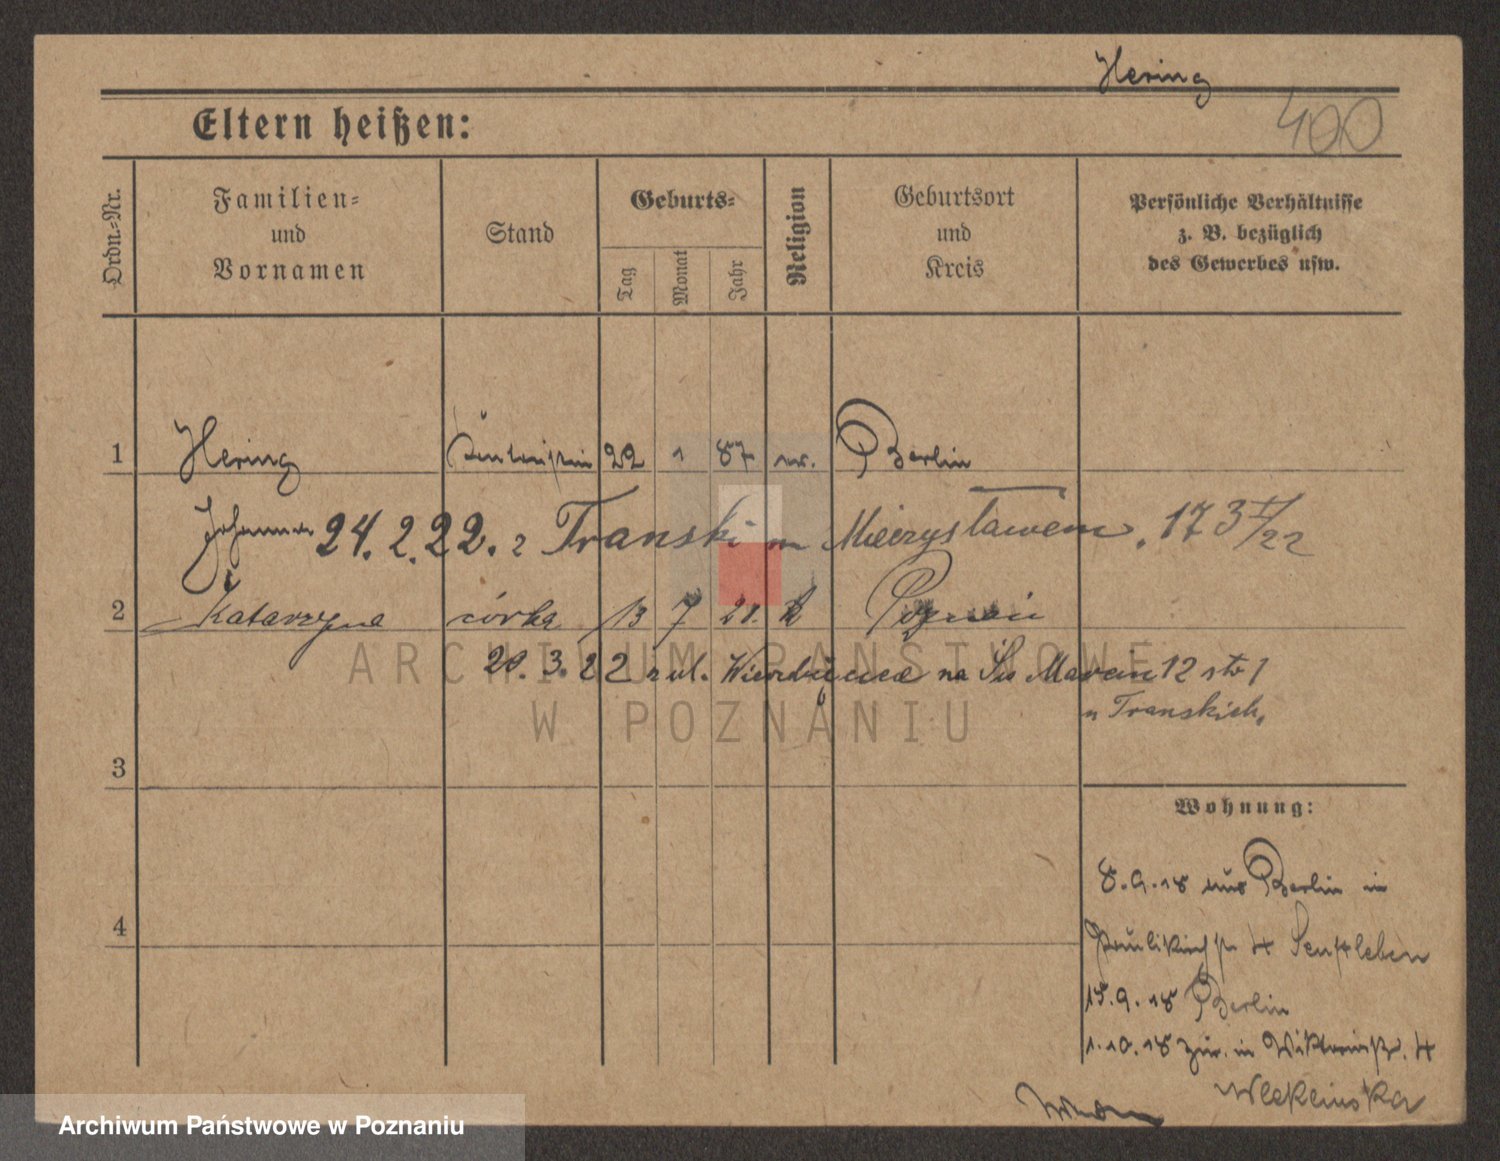 Hering
400
Eltern heißen:
Ordn.-Nr.
Familien-
und
Vornamen
Stand
Geburts-
Tag
Monat
Jahr
Religion
Geburtsort
und
Kreis
Persönliche Verhältnisse
z. B. bezüglich
des Gewerbes usw.
1 Hering 22 1 87 Berlin
Johanna 24.2.22. z Transki m Mieczysławem. 17 3 V/22
2 Katarzyna córka 13 7 21. k Poznań
20.3.22 z ul. na Św Marcin 12 str 1
u Transkich.
3
Wohnung:
8.9.18 aus Berlin in
4
Paulikirchstr 4 Senftleben
15.9.18 Berlin
1.10.18 zur. in Viktoriastr. 4
Wleklinska
ARCHIWUM PAŃSTWOWE
W POZNANIU
Archiwum Państwowe w Poznaniu